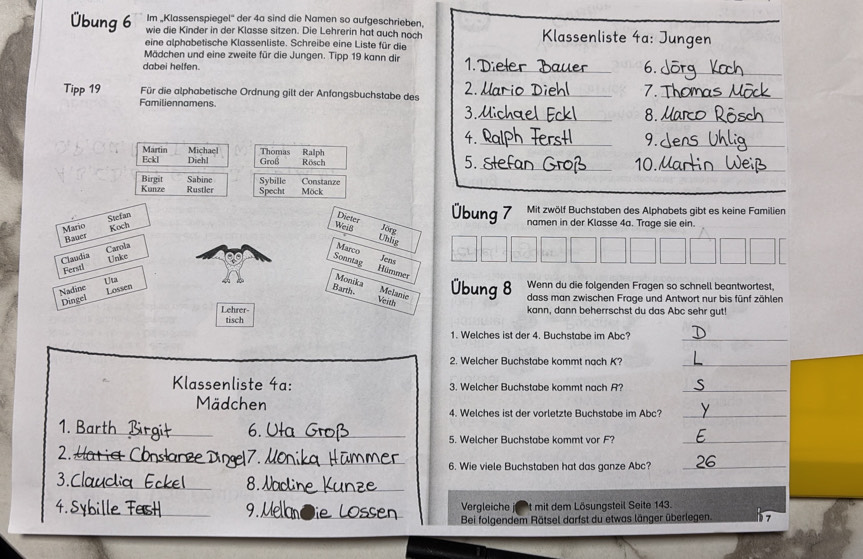 Übung 6
Im „Klassenspiegel“ der 4a sind die Namen so aufgeschrieben,
wie die Kinder in der Klasse sitzen. Die Lehrerin hat auch noch
eine alphabetische Klassenliste. Schreibe eine Liste für die
Mädchen und eine zweite für die Jungen. Tipp 19 kann dir
dabei helfen.
Tipp 19
Für die alphabetische Ordnung gilt der Anfangsbuchstabe des
Familiennamens.
Martin Michael
Eckl Diehl
Thomas Ralph
Groß Rösch
Birgit Sabine
Kunze Rustler
Sybille Constanze
Specht Möck
Mario Stefan
Bauer Koch
Claudia Carola
Ferstl Unke
Nadine Uta
Dingel Lossen
Dieter Jörg
Weiß Uhlig
Marco Jens
Sonntag Hümmer
Monika Melanie
Barth. Veith
Lehrer-
tisch
Klassenliste 4a:
Mädchen
1. Barth Birgit
2. Constanze Dingel
3. Claudia Eckel
4. Sybille
6. Uta Groß
7. Monika Hümmer
8. Nadine Kunze
9. Melanie Lossen
Klassenliste 4a: Jungen
1. Dieter Bauer
2. Mario Diehl
3. Michael Eckl
4. Ralph Ferstl
5. Stefan Groß
6. Jörg Koch
7. Thomas Möck
8. Marco Rösch
9. Jens Uhlig
10. Martin Weiß
Übung 7
Mit zwölf Buchstaben des Alphabets gibt es keine Familien
namen in der Klasse 4a. Trage sie ein.
Übung 8
Wenn du die folgenden Fragen so schnell beantwortest,
dass man zwischen Frage und Antwort nur bis fünf zählen
kann, dann beherrschst du das Abc sehr gut!
1. Welches ist der 4. Buchstabe im Abc? D
2. Welcher Buchstabe kommt nach K? L
3. Welcher Buchstabe kommt nach R? S
4. Welches ist der vorletzte Buchstabe im Abc? Y
5. Welcher Buchstabe kommt vor F? E
6. Wie viele Buchstaben hat das ganze Abc? 26
Vergleiche mit dem Lösungsteil Seite 143.
Bei folgendem Rätsel darfst du etwas länger überlegen.
7